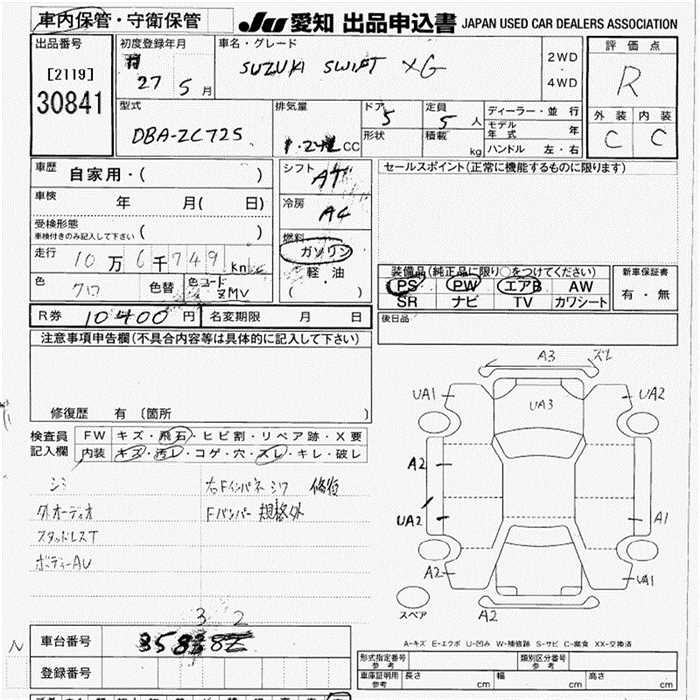 車内保管・守衛保管
JU 愛知 出品申込書 JAPAN USED CAR DEALERS ASSOCIATION
出品番号
[2119]
30841
初度登録年月
27 5 月
車名・グレード
SUZUKI SWIFT XG
2WD
4WD
評価点
R
外装 内装
C C
型式
DBA-ZC72S
排気量
1.24L CC
ドア
5
形状
定員
5 人
積載
kg
ディーラー・並行
モデル年式 年
ハンドル 左・右
車歴 自家用・( )
車検 年 月( 日)
受検形態
車検付きのみ記入して下さい ( )
走行 10 万 6 千 749 km
色 クロ 色替 色コード ZMV
シフト AT
冷房 AC
燃料
ガソリン
軽・油
( )
セールスポイント(正常に機能するものに限ります)
装備品(純正品に限り○をつけてください)
PS PW エアB AW
SR ナビ TV カワシート
新車保証書
有・無
R券 10400 円 名変期限 月 日
後日品
注意事項申告欄(不具合内容等は具体的に記入して下さい)
修復歴 有 〔箇所 〕
検査員記入欄
FW キズ・飛石・ヒビ割・リペア跡・X要
内装 キズ・汚レ・コゲ・穴・スレ・キレ・破レ
シミ
外オーディオ
スタッドレスT
ボディーAU
右Fインパネシワ 修復
Fバンパー規格外
A3 ズレ
UA1
UA3
UA2
A2
UA2
A1
A2
UA1
A2
スペア
A-キズ E-エクボ U-凹み W-補修跡 S-サビ C-腐食 XX-交換済
3 2
車台番号
登録番号
形式指定番号
参考
類別区分番号
参考
車庫証明用
参考
長さ cm 幅 cm 高さ cm